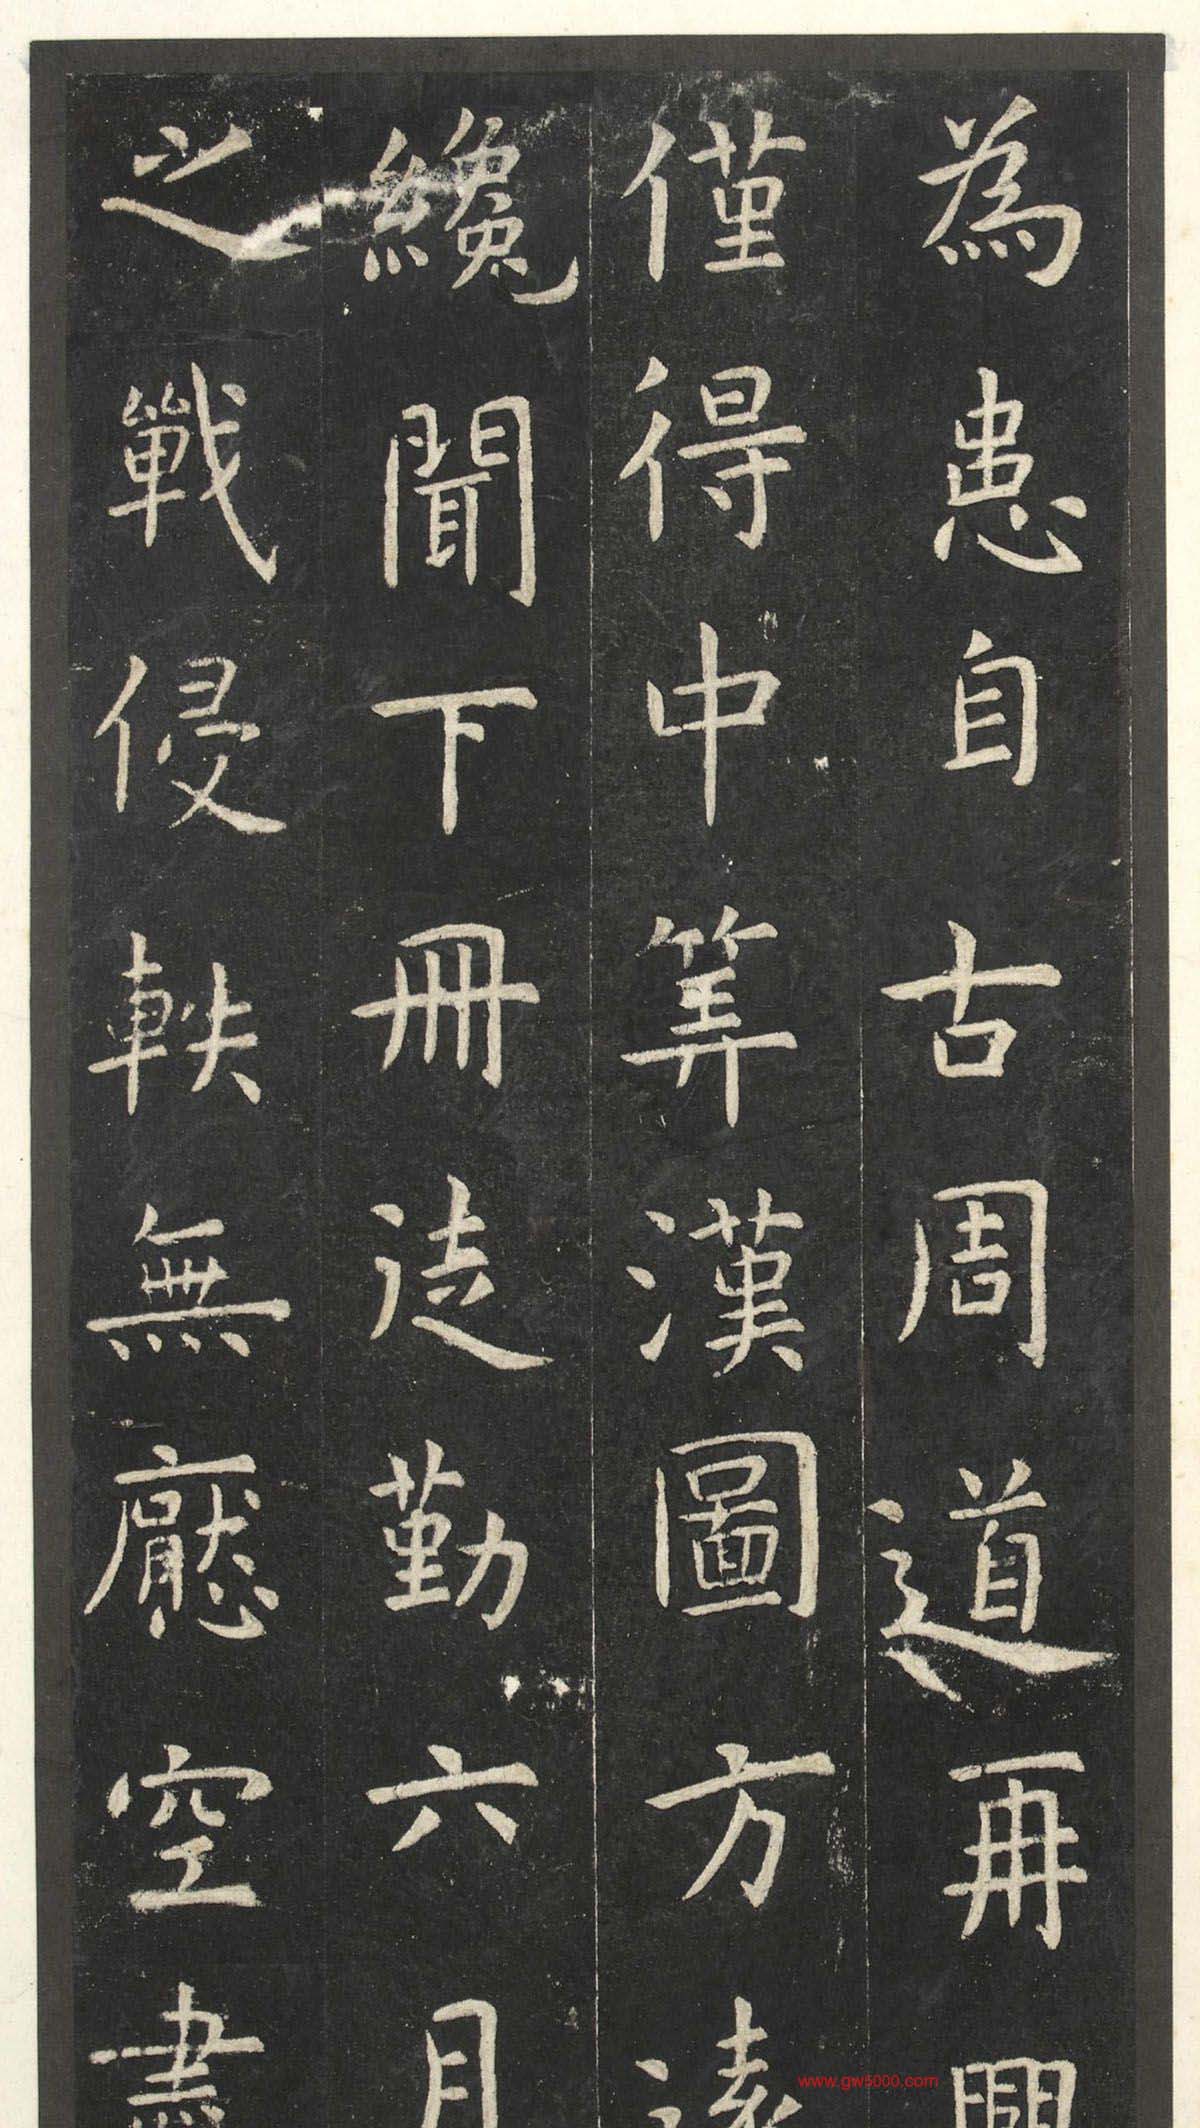 為患自古周道再興
僅得中筭漢圖方遠
纔聞下冊徒勤六月
之戰侵軼無厭空盡
www.gw5000.com